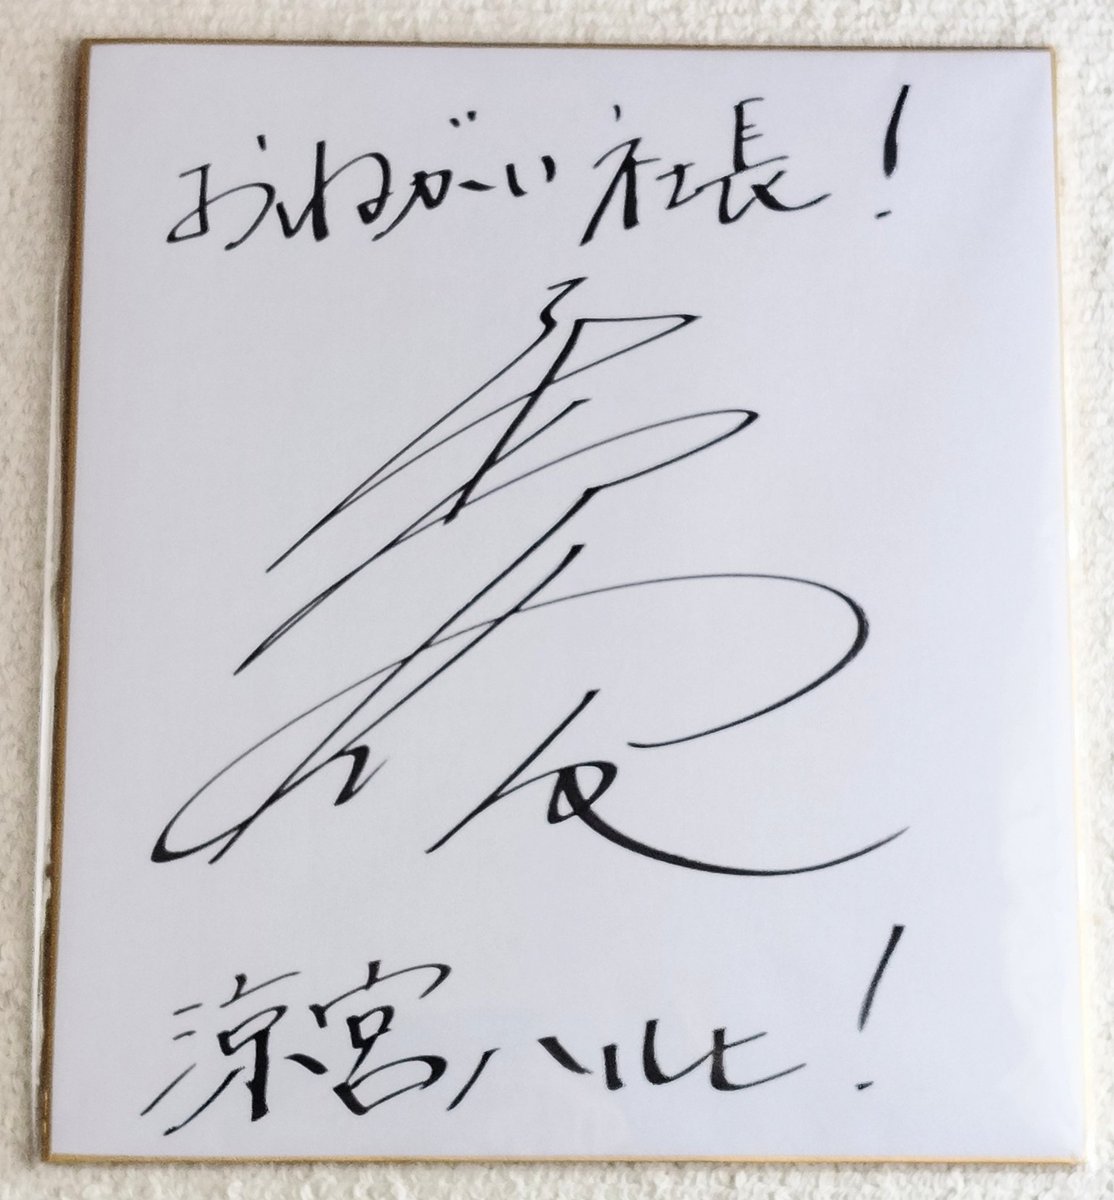 おねがい社長!
涼宮ハルヒ!